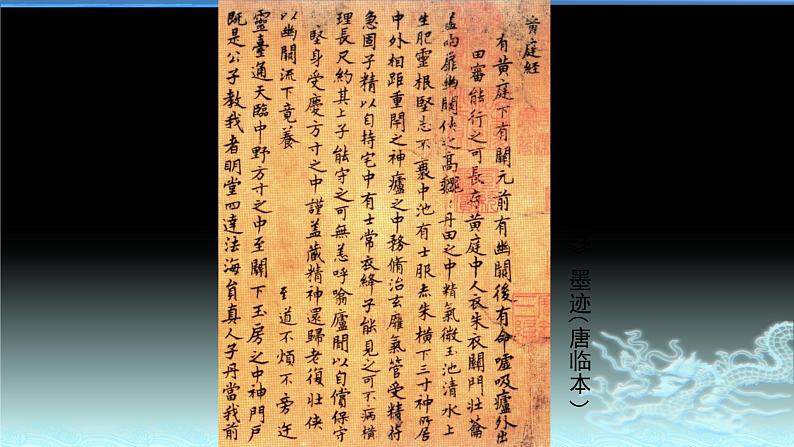 黄庭經
有黄庭下有關元前有幽闕後有命嘘吸廬外出
田審能行之可長存黄庭中人衣朱衣關門壯籥
盖兩扉幽闕俠之高巍巍丹田之中精氣微玉池清水上
生肥靈根堅志不衰中池有士服赤朱横下三寸神所居
中外相距重閇之神廬之中務脩治玄廱氣管受精符
急固子精以自持宅中有士常衣絳子能見之可不病横
理長尺約其上子能守之可無恙呼噏廬間以自償保守
堅身受慶方寸之中謹盖藏精神還歸老復壯俠
以幽闕流下竟養 至道不煩不旁迕
靈臺通天臨中野方寸之中至關下玉房之中神門户
既是公子教我者明堂四達法海員真人子丹當我前
》墨迹（唐临本）